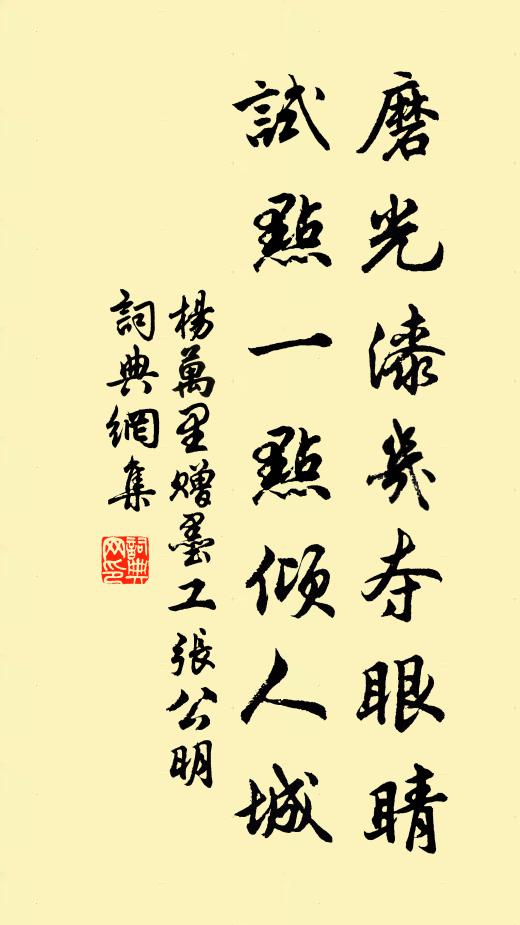 磨光漆几夺眼睛
試點一點傾人城
楊萬里贈墨工張公明
詞典網集
詞典網印